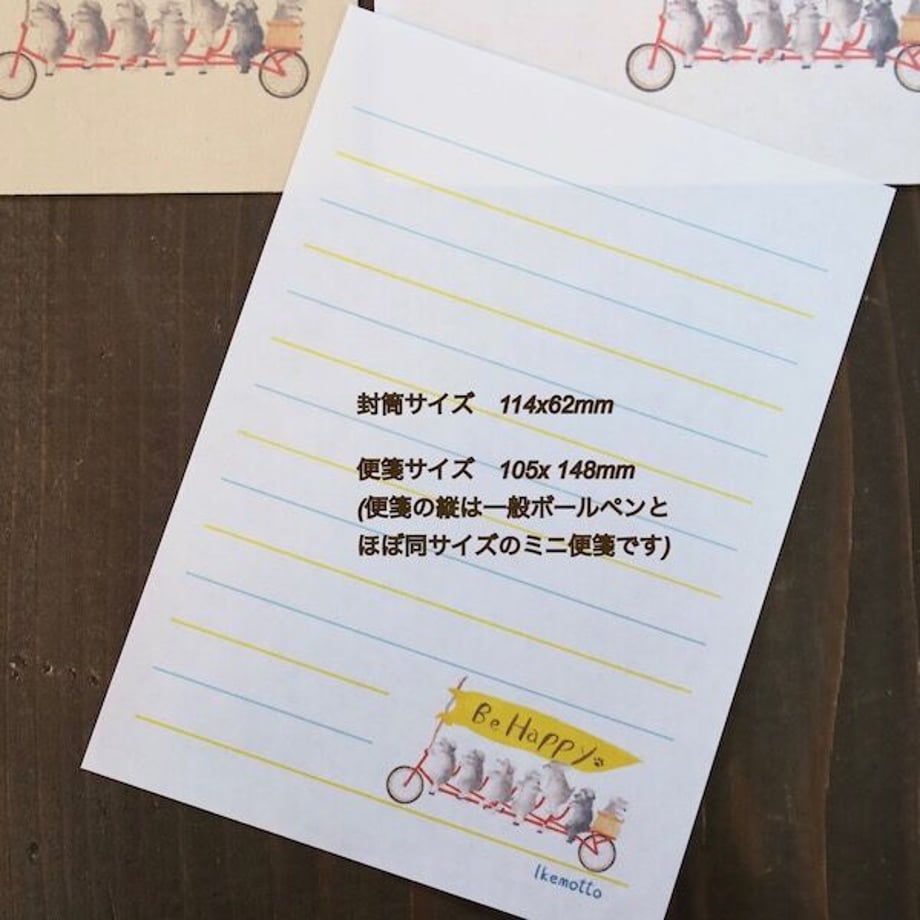 封筒サイズ　114x62mm
便箋サイズ　105x 148mm
(便箋の縦は一般ボールペンと
ほぼ同サイズのミニ便箋です)
Be Happy
Ikemotto